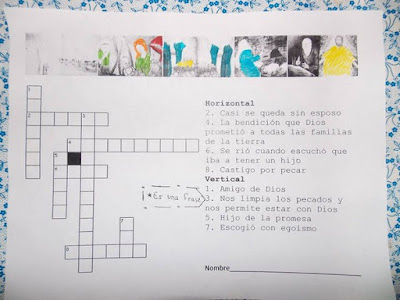 1
Horizontal
2. Casi se queda sin esposo
4. La bendición que Dios
prometió a todas las familias
de la tierra
6. Se rió cuando escuchó que
iba a tener un hijo
8. Castigo por pecar
Vertical
1. Amigo de Dios
3. Nos limpia los pecados y
nos permite estar con Dios
5. Hijo de la promesa
7. Escogió con egoísmo
2
3
4
5
6
*Es una frase
7
8
Nombre